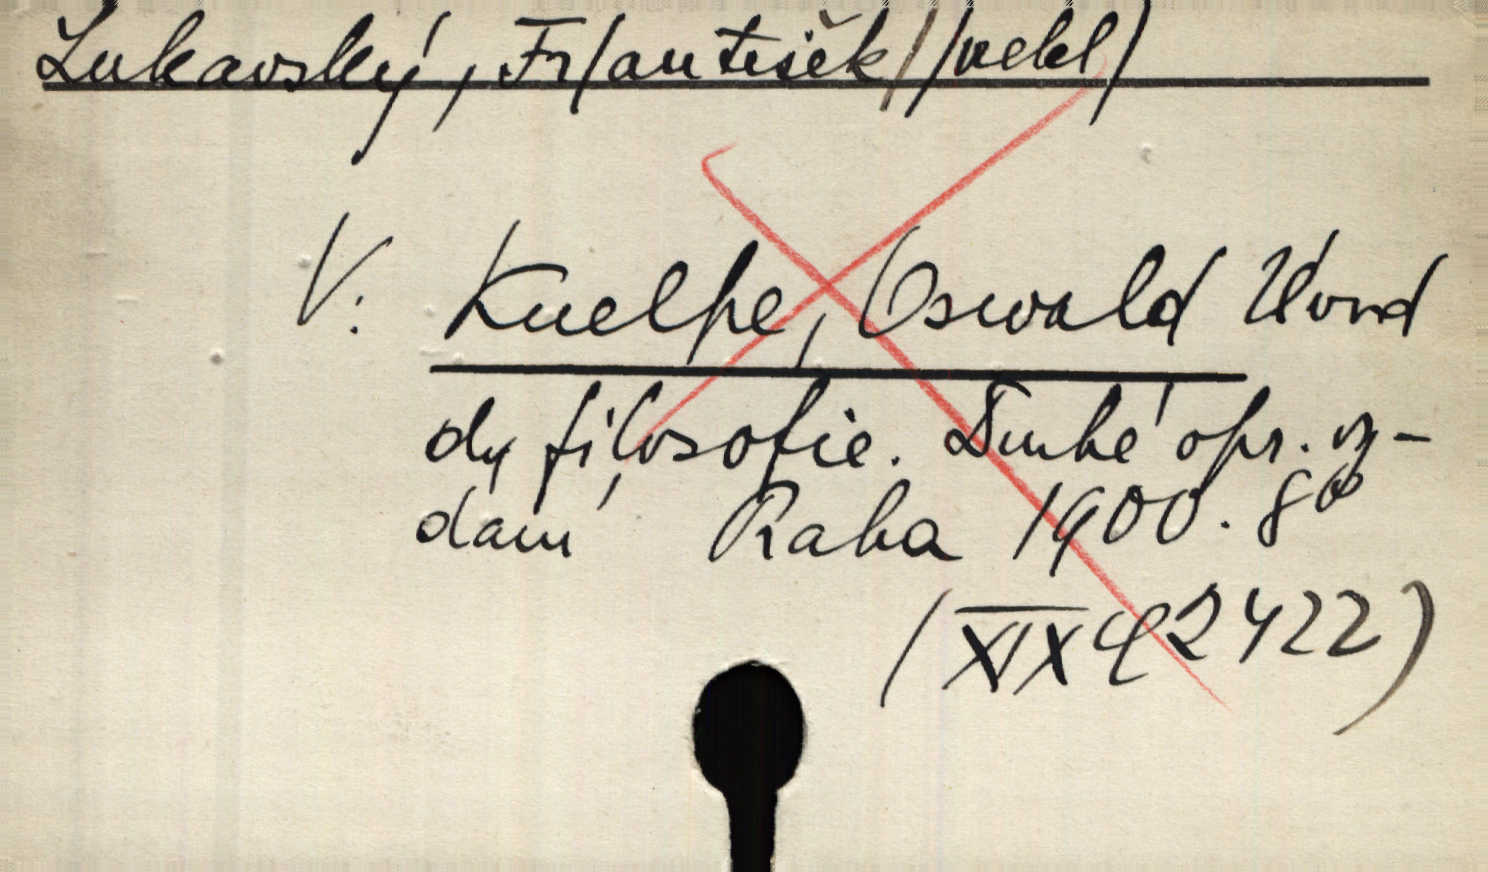 Lukavský, Fr/antišek/ /vekl/
V: Kuelpe, Oswald Úvod
dy filosofie. Druhé opr. vy-
dání Praha 1900. 8°
(XIX 2422)